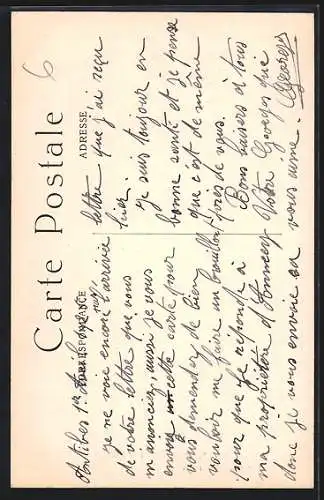 Carte Postale
CORRESPONDANCE
ADRESSE
6
Antibes 1er Avril
je ne vois encore rien l'arrivée
de votre lettre que vous
m'annoncez, aussi je vous
envoie cette carte pour
vous demander de bien
vouloir me faire un brouillon
pour que je réponde à
ma propriétaire d'Annecy
donc je vous envoie
lettre que j'ai reçu
hier.
Je suis toujour en
bonne santé et je pense
que c'est de même
près de vous.
Bons baisers à tous
Votre Georges que
vous aime.
Georges